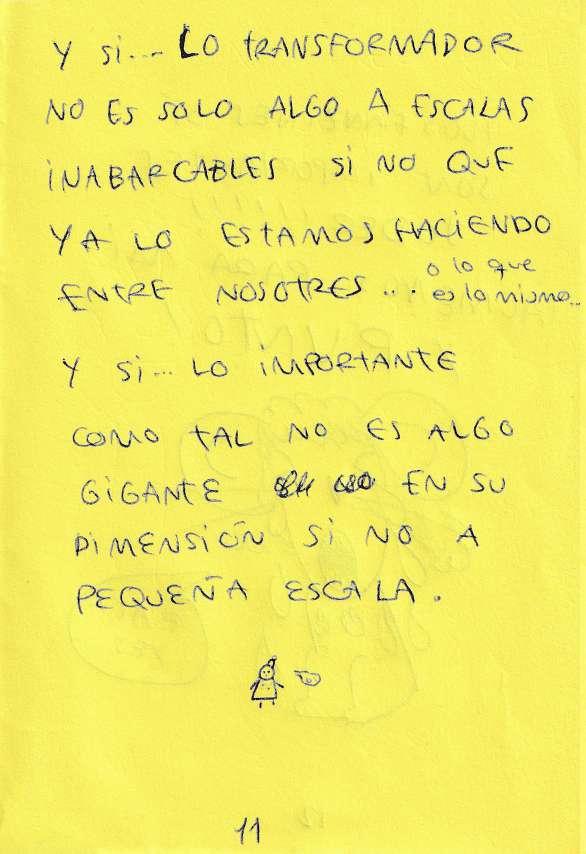 Y Si... LO TRANSFORMADOR
NO ES SOLO ALGO A ESCALAS
INABARCABLES SI NO QUE
YA LO ESTAMOS HACIENDO
ENTRE NOSOTRES... o lo que
es lo mismo..
Y Si... LO IMPORTANTE
COMO TAL NO ES ALGO
GIGANTE EN SU
DIMENSIÓN SI NO A
PEQUEÑA ESCALA.
11